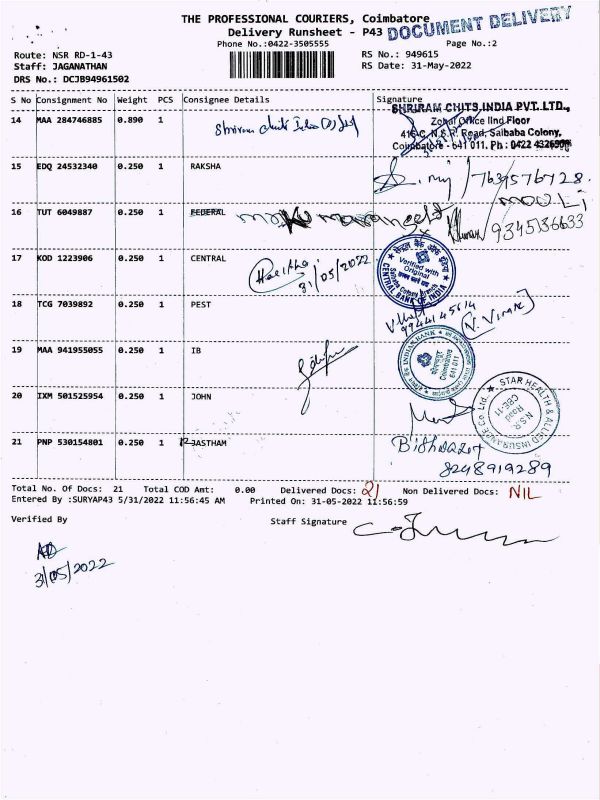 THE PROFESSIONAL COURIERS, Coimbatore
DOCUMENT DELIVERY
Delivery Runsheet - P43
Phone No.:0422-3505555
Page No.:2
Route: NSR RD-1-43
RS No.: 949615
Staff: JAGANATHAN
RS Date: 31-May-2022
DRS No.: DCJB94961502
S No Consignment No Weight PCS Consignee Details Signature
SHRIRAM CHITS INDIA PVT. LTD.,
Zonal Office IInd Floor
416-C, N.S.R. Road, Saibaba Colony,
Coimbatore - 641 011. Ph : 0422
14 MAA 284746885 0.890 1
15 EDQ 24532340 0.250 1 RAKSHA
7639576728.
MOULI
16 TUT 6049887 0.250 1 FEDERAL
9345136633
17 KOD 1223906 0.250 1 CENTRAL
31/05/2022
Verified with
Original
CENTRAL BANK OF INDIA
18 TCG 7039892 0.250 1 PEST
9944145614
19 MAA 941955055 0.250 1 IB
INDIAN BANK
Coimbatore
641 011
20 IXM 501525954 0.250 1 JOHN
STAR HEALTH & ALLIED INSURANCE Co Ltd.
N.S.R.
Road
CBE-11
21 PNP 530154801 0.250 1 JASTHAM
8248919289
Total No. Of Docs: 21 Total COD Amt: 0.00 Delivered Docs: 21 Non Delivered Docs: NIL
Entered By :SURYAP43 5/31/2022 11:56:45 AM Printed On: 31-05-2022 11:56:59
Verified By
Staff Signature
31/05/2022